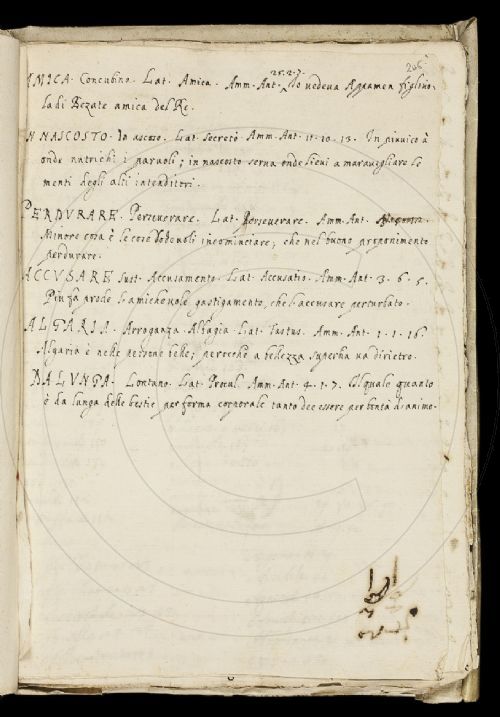 206
AMICA. Concubina. Lat. Amica. Amm. Ant. 25.2.7. Io vedeva Apamen figliuo-
la di Bezate amica del Re.
IN NASCOSTO. In ascoso. Lat. Secretò Amm. Ant. 11. 10. 13. In piuvico à
onde nutrichi i parvoli; in nascosto serva onde lievi a maravigliare le
menti degli alti intenditori.
PERDURARE. Perseverare. Lat. Perseverare. Amm. Ant.
Minore cosa è le cose lodevoli incominciare; che nel buono proponimento
perdurare.
ACCUSARE Sust. Accusamento. Lat. Accusatio. Amm. Ant. 3. 6. 5.
Piu fa prode l'amichevole gastigamento, che l'accusare perturbato.
ALGARIA. Arroganza Lat. Fastus. Amm. Ant. 1. 1. 16.
Algaria è nelle persone belle; perocchè a bellezza superbia va dirietro.
DA LUNGA. Lontano. Lat. Procul. Amm. Ant. 4. 1. 7. Il quale quanto
è da lunga delle bestie per forma corporale tanto dee essere per bontà d'animo.